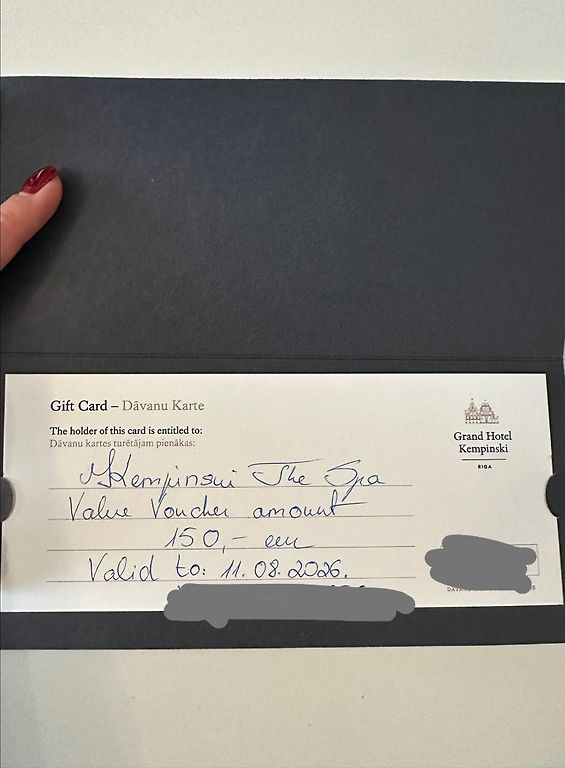 Gift Card – Dāvanu Karte
The holder of this card is entitled to:
Dāvanu kartes turētājam pienākas:
Kempinski The Spa
Value Voucher amount
150,- eur
Valid to: 11.08.2026.
Grand Hotel
Kempinski
RIGA